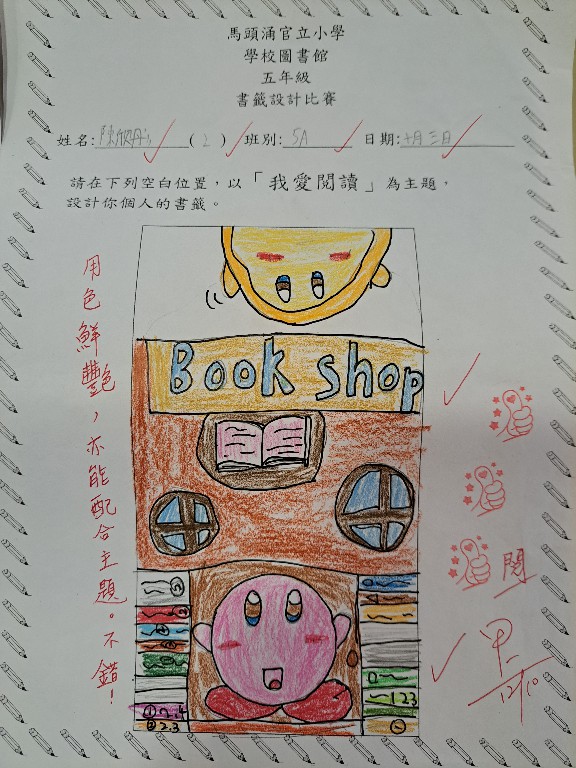 馬頭涌官立小學
學校圖書館
五年級
書籤設計比賽
姓名: 陳欣彤 ( 2 ) 班別: 5A 日期: 十月三日
請在下列空白位置，以「我愛閱讀」為主題，
設計你個人的書籤。
用色鮮艷，亦能配合主題。不錯！
Book shop
閱
甲-
12/10
123
① 2.4
② 2.3